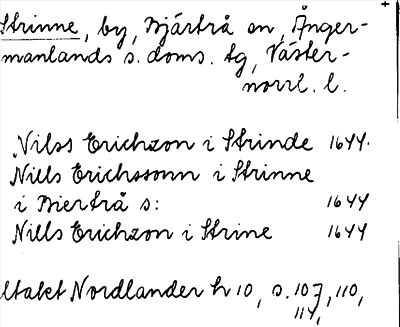 Strinne, by, Bjärtrå sn, Ånger-
manlands s. doms. tg, Väster-
norrl. l.
Nilss Erichzon i Strinde 1644.
Nills Erichssonn i Strinne
i Biertrå s: 1644
Nills Erichzon i Strine 1644
Utakt Nordlander h 10, s. 107, 110,
114,